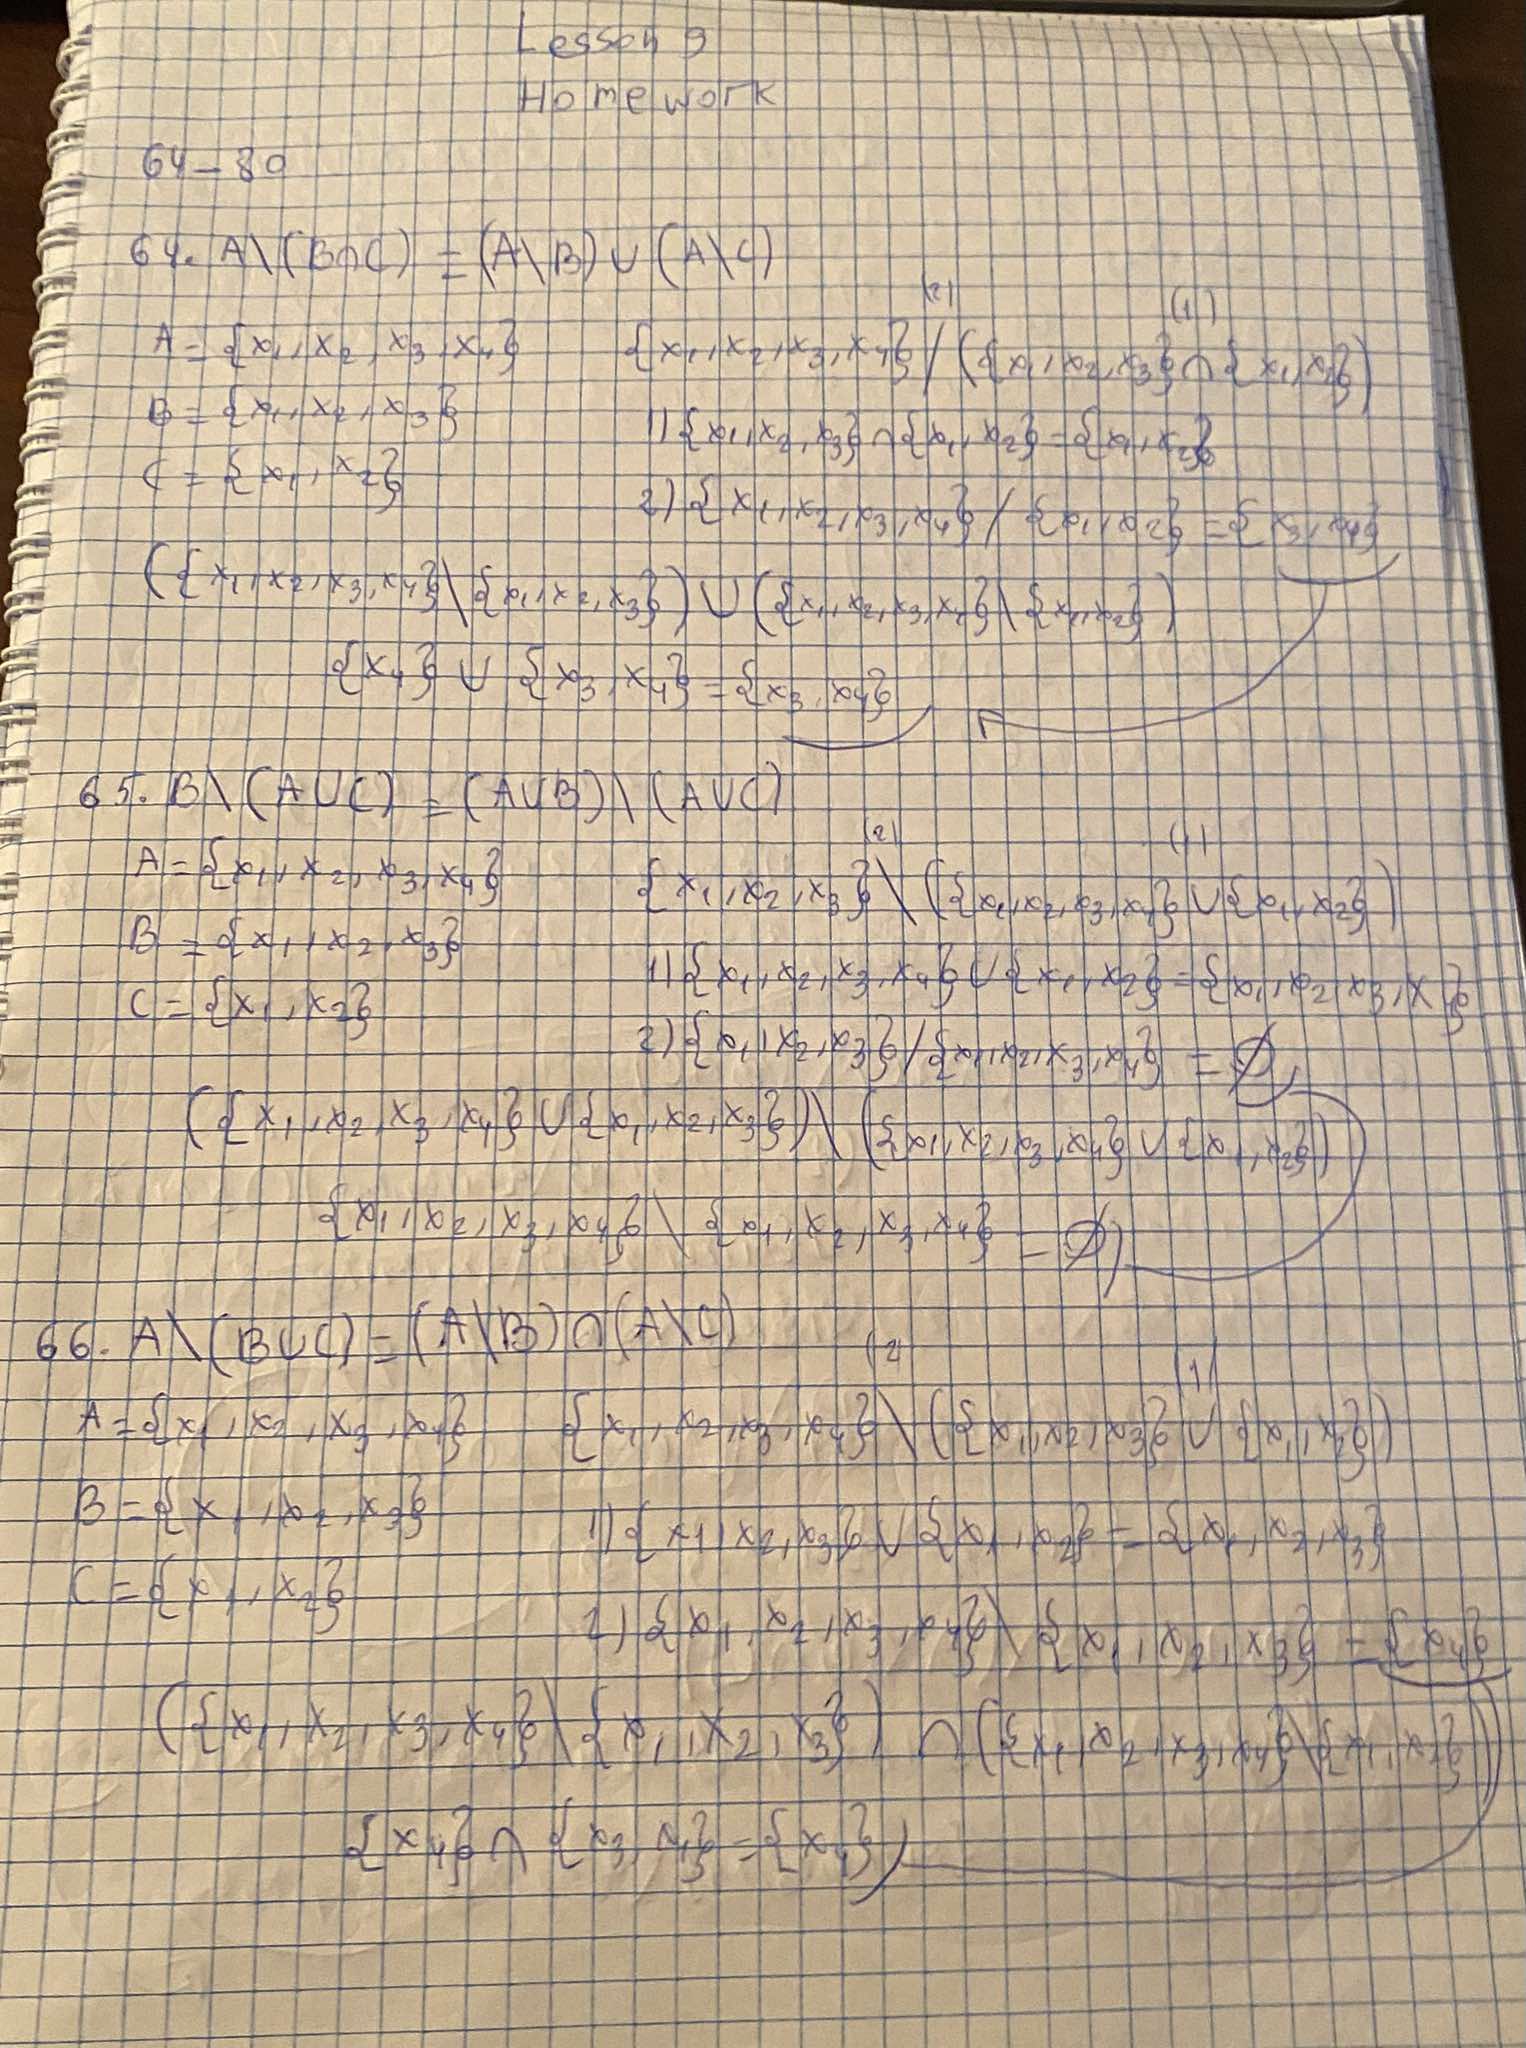 Lesson 9
Homework
64-80
64. A\(B∩C) = (A\B)∪(A\C)
(2) (1)
A={x1,x2,x3,x4} {x1,x2,x3,x4}/({x1,x2,x3}∩{x1,x2})
B={x1,x2,x3} 1){x1,x2,x3}∩{x1,x2}={x1,x2}
C={x1,x2} 2){x1,x2,x3,x4}/{x1,x2}={x3,x4}
({x1,x2,x3,x4}\{x1,x2,x3})∪({x1,x2,x3,x4}\{x1,x2})
{x4}∪{x3,x4}={x3,x4}
65. B\(A∪C) = (A∪B)\(A∪C)
(2) (1)
A={x1,x2,x3,x4} {x1,x2,x3}\({x1,x2,x3,x4}∪{x1,x2})
B={x1,x2,x3} 1){x1,x2,x3,x4}∪{x1,x2}={x1,x2,x3,x}
C={x1,x2} 2){x1,x2,x3}/{x1,x2,x3,x4}=∅
({x1,x2,x3,x4}∪{x1,x2,x3})\({x1,x2,x3,x4}∪{x1,x2})
{x1,x2,x3,x4}\{x1,x2,x3,x4}=∅
66. A\(B∪C)=(A\B)∩(A\C)
(2 (1)
A={x1,x2,x3,x4} {x1,x2,x3,x4}\({x1,x2,x3}∪{x1,x2})
B={x1,x2,x3} 1){x1,x2,x3}∪{x1,x2}={x1,x2,x3}
C={x1,x2} 2){x1,x2,x3,x4}\{x1,x2,x3}={x4}
({x1,x2,x3,x4}\{x1,x2,x3})∩({x1,x2,x3,x4}\{x1,x2})
{x4}∩{x3,x4}={x4}